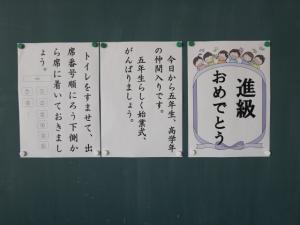 進級
おめでとう
今日から五年生、高学年
の仲間入りです。
五年生らしく始業式、
がんばりましょう。
トイレをすませて、出
席番号順にろう下側か
ら席に着いておきまし
ょう。